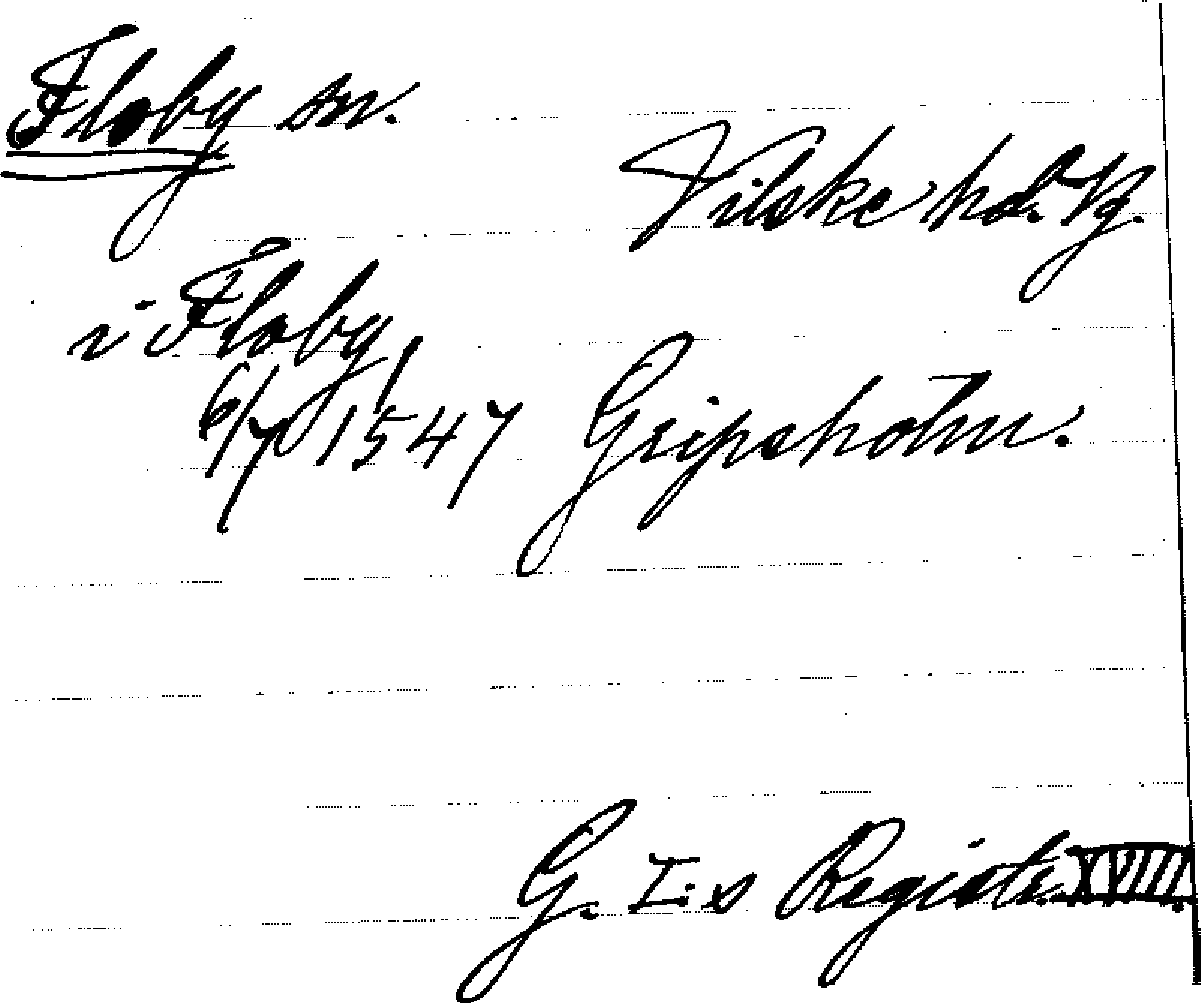 Floby sn.
Vilske hd. Vg.
i Floby
6/7 1547 Gripsholm.
G. I:s Registr. XVIII.